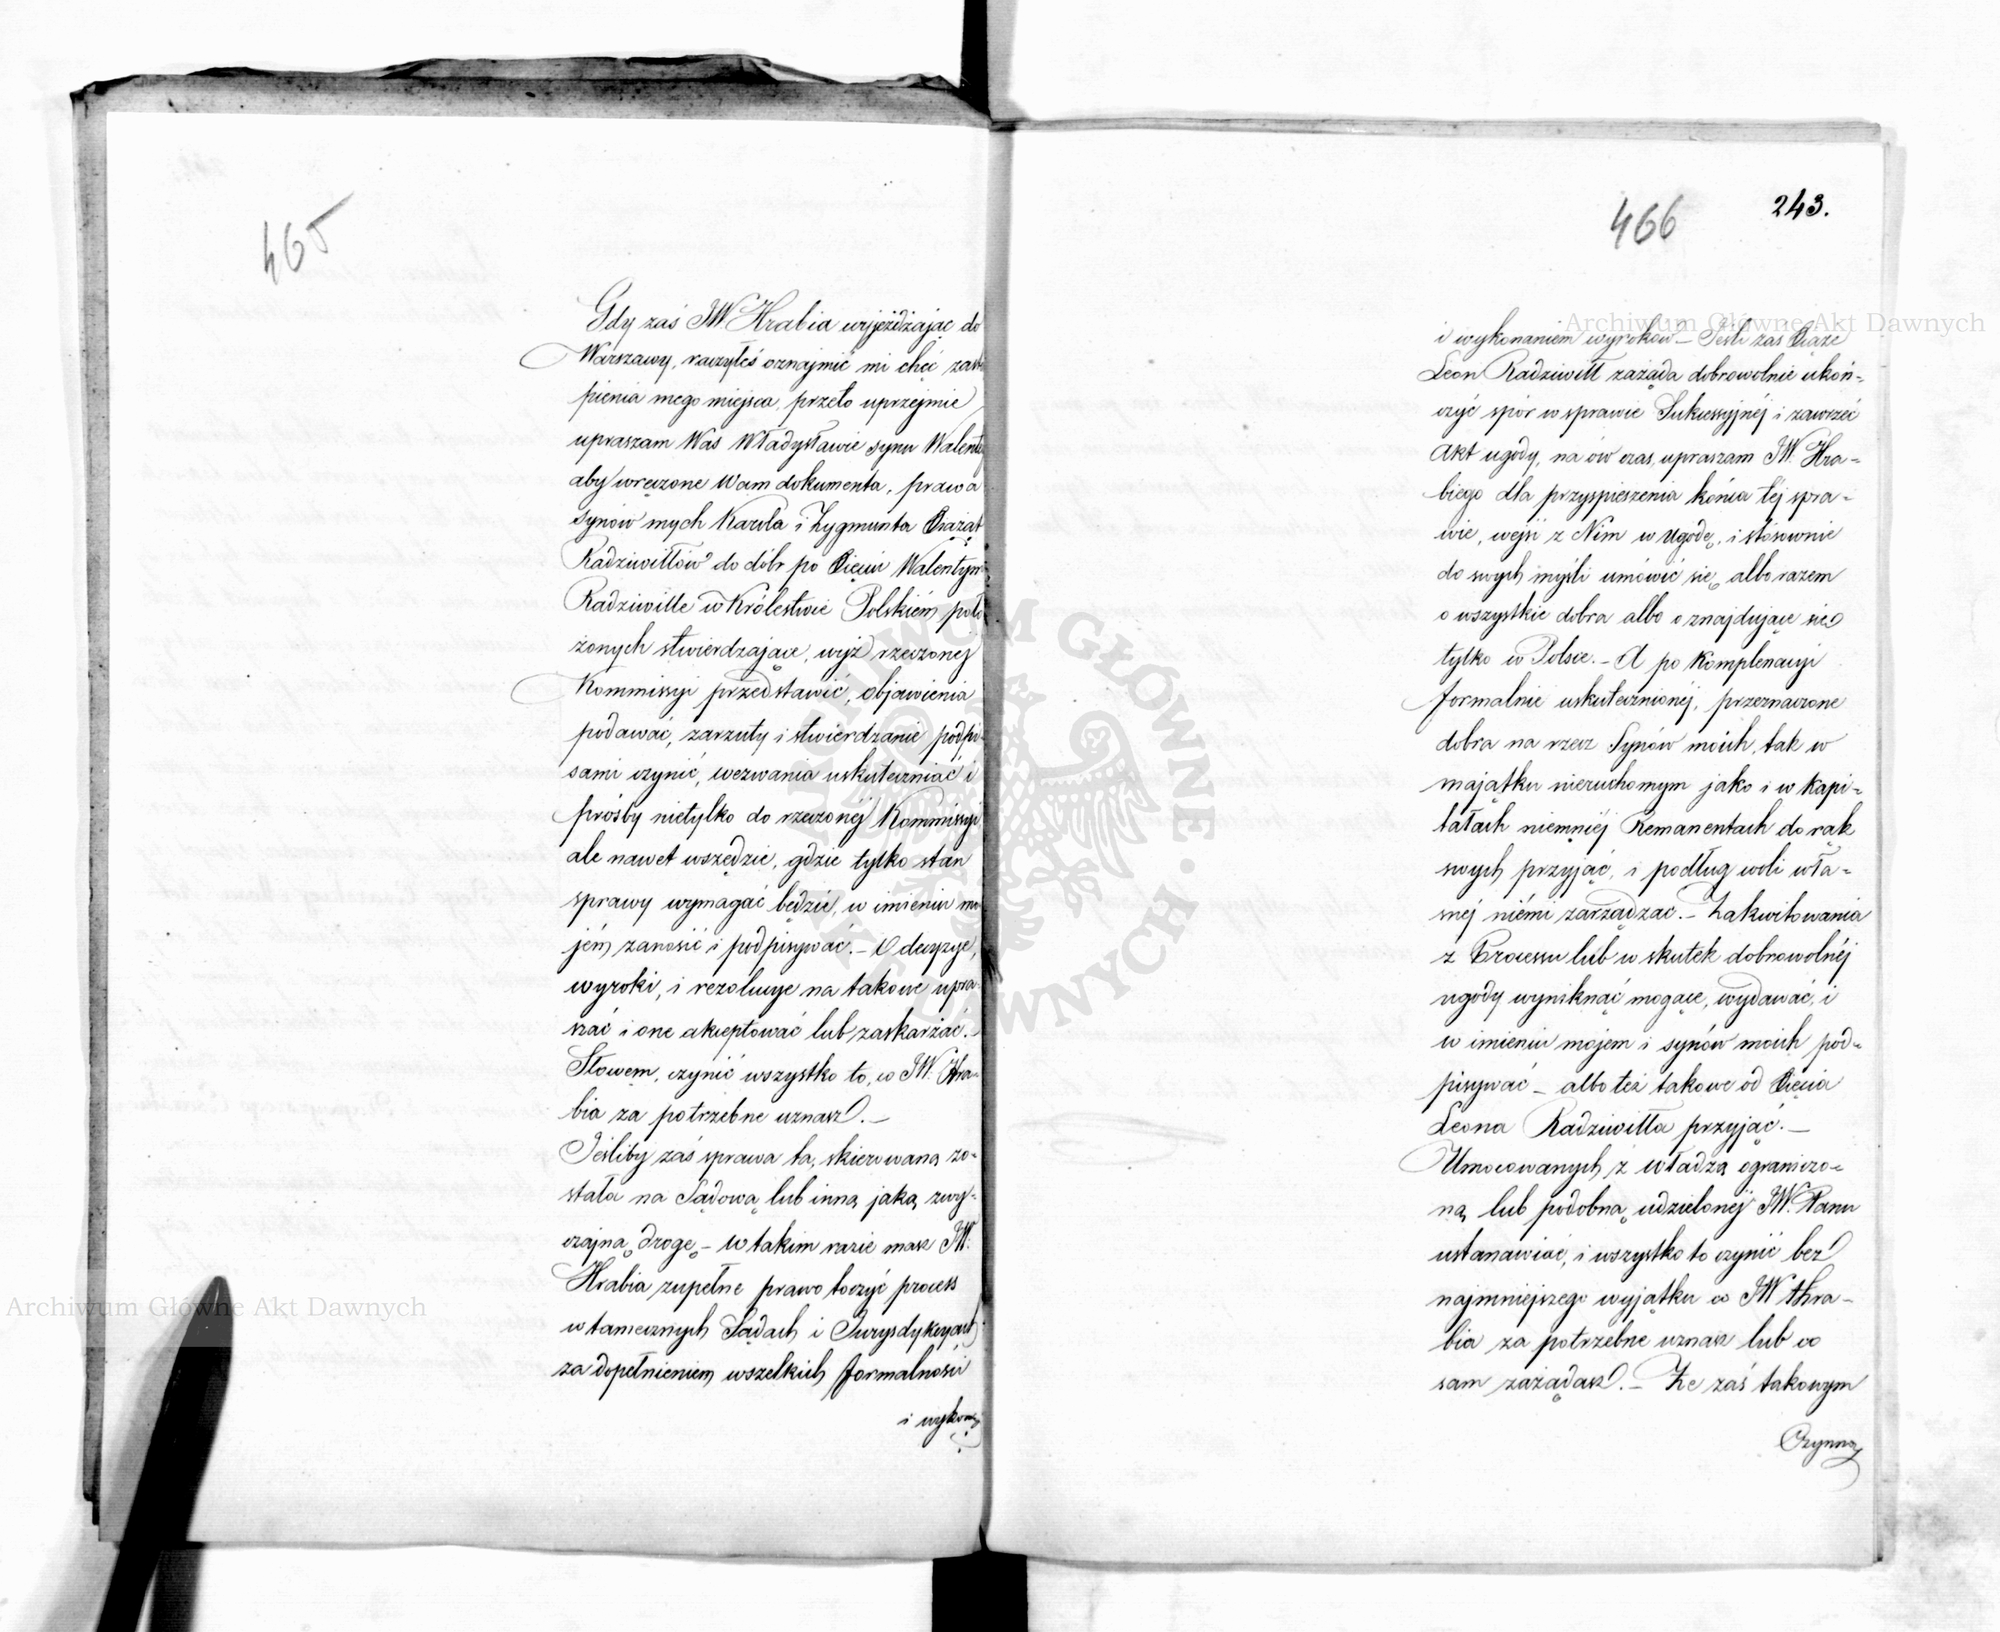 465
Gdy zaś JW Hrabia wyjeżdżając do
Warszawy, raczyłeś oznajmić mi chęć zastą
pienia mego miejsca, przeto uprzejmie
upraszam Was Władysławie synu Walente
aby wręczone Wam dokumenta, prawa
synów mych Karola i Zygmunta Książąt
Radziwiłłów do dóbr po Xięciu Walentym
Radziwille w Królestwie Polskiém poło
żonych stwierdzające, wyż rzeczonej
Kommissyi przedstawić, objawienia
podawać, zarzuty i stwierdzanie podpi-
sami czynić, wezwania uskuteczniać i
prośby nietylko do rzeczonéj Kommissyi
ale nawet wszędzie, gdzie tylko stan
sprawy wymagać będzie, w imieniu mo
jém zanosić i podpisywać. – O decyzye,
wyroki, i rezolucye na takowe upra-
szać i one akceptować lub zaskarżać. –
Słowem, czynić wszystko to, co JW. Hra-
bia za potrzebne uznasz. –
Jeśliby zaś sprawa ta, skierowaną zo-
stała na Sądową lub inną jaką zwy-
czajną drogę – w takim razie masz JW.
Hrabia zupełne prawo toczyć process
w tamecznych Sądach i Jurysdykcyach
za dopełnieniem wszelkich formalności
i wykon
466
243.
i wykonaniem wyroków – Jeśli zaś Xiąże
Leon Radziwiłł zażąda dobrowolnie ukoń-
czyć spór w sprawie Sukcessyjnéj i zawrzeć
Akt ugody, na ów czas, upraszam JW. Hra-
biego dla przyspieszenia końca téj spra-
wie, wejść z Nim w Ugodę, i stósownie
do swych myśli umówić się, albo razem
o wszystkie dobra albo o znajdujące się
tylko w Polsce. – A po Komplenacyi
formalnie uskutecznionéj, przeznaczone
dobra na rzecz Synów moich, tak w
majątku nieruchomym jako i w Kapi-
tałach niemniéj Remanentach do rąk
swych przyjąć, i podług woli wła-
snej niémi zarządzać. – Zakwitowania
z Processu lub w skutek dobrowolnéj
ugody wyniknąć mogące, wydawać, i
w imieniu mojem i synów moich pod-
pisywać – albo też takowe od Xięcia
Leona Radziwiłła przyjąć. –
Umocowanych z władzą ograniczo-
ną lub podobną udzielonéj JW. Panu
ustanawiać, i wszystko to czynić bez
najmniejszego wyjątku co JW Hra-
bia za potrzebne uznasz lub co
sam zażądasz. – Że zaś takowym
Czynną
Archiwum Główne Akt Dawnych
Archiwum Główne Akt Dawnych
ARCHIWUM GŁÓWNE · AKT DAWNYCH ·